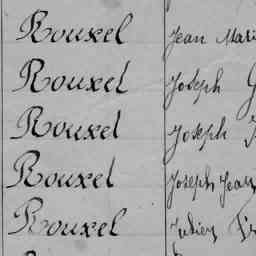 Rouxel Jean Mari
Rouxel Joseph
Rouxel Joseph
Rouxel Joseph Jean
Rouxel Julien